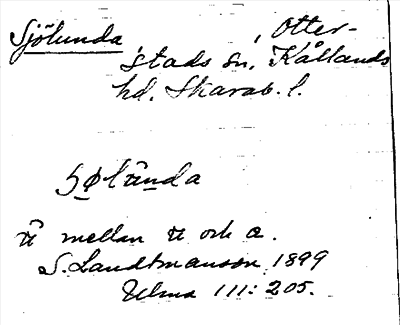 Sjölunda, Otter-
stads sn, Kållands
hd. Skarab. l.
mellan u och a.
S. Landtmanson 1899
Ulma 111: 205.